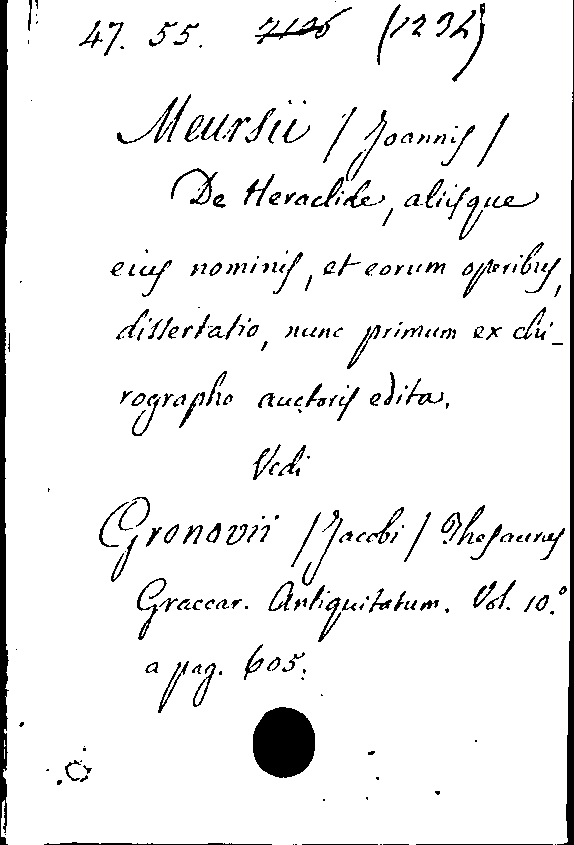 47. 55. (1232)
Meursii / Joannis /
De Heraclide, aliisque
eius nominis, et eorum operibus,
dissertatio, nunc primum ex chi-
rographo auctoris edita.
Vedi
Gronovii / Jacobi / Thesaurus
Graecar. Antiquitatum. Vol. 10.º
a pag. 605.